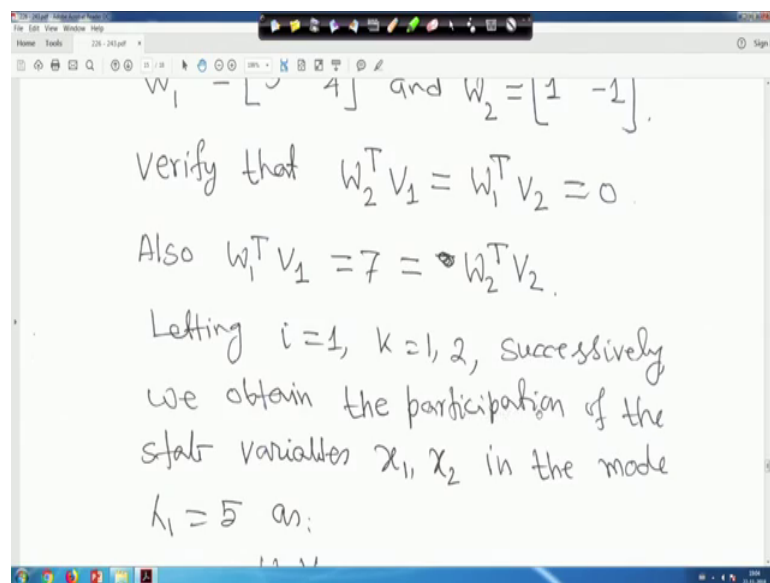 226 - 243.pdf - Adobe Acrobat Reader DC
File Edit View Window Help
Home Tools 226 - 243.pdf × Sign
W₁ = [3 4] and W₂ = [1 -1].
Verify that W₂ᵀ V₁ = W₁ᵀ V₂ = 0.
Also W₁ᵀ V₁ = 7 = W₂ᵀ V₂.
Letting i=1, k=1, 2, successively
we obtain the participation of the
state variables x₁, x₂ in the mode
λ₁ = 5 as: